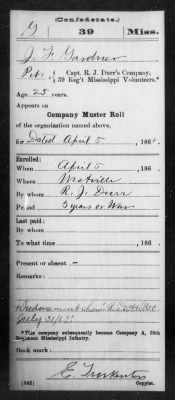 (Confederate.)
G 39 Miss.
J. F. Gardner
Pvt., Capt. R. J. Durr's Company,
39 Reg't Mississippi Volunteers.*
Age 25 years.
Appears on
Company Muster Roll
of the organization named above,
for Dated April 5, 186
Enrolled:
When April 5, 186
Where Westville
By whom R. J. Durr
Period 3 years or War
Last paid:
By whom
To what time , 186
Present or absent -
Remarks:
July
*This company subsequently became Company A, 39th
Regiment Mississippi Infantry.
Book mark:
(642) Copyist.